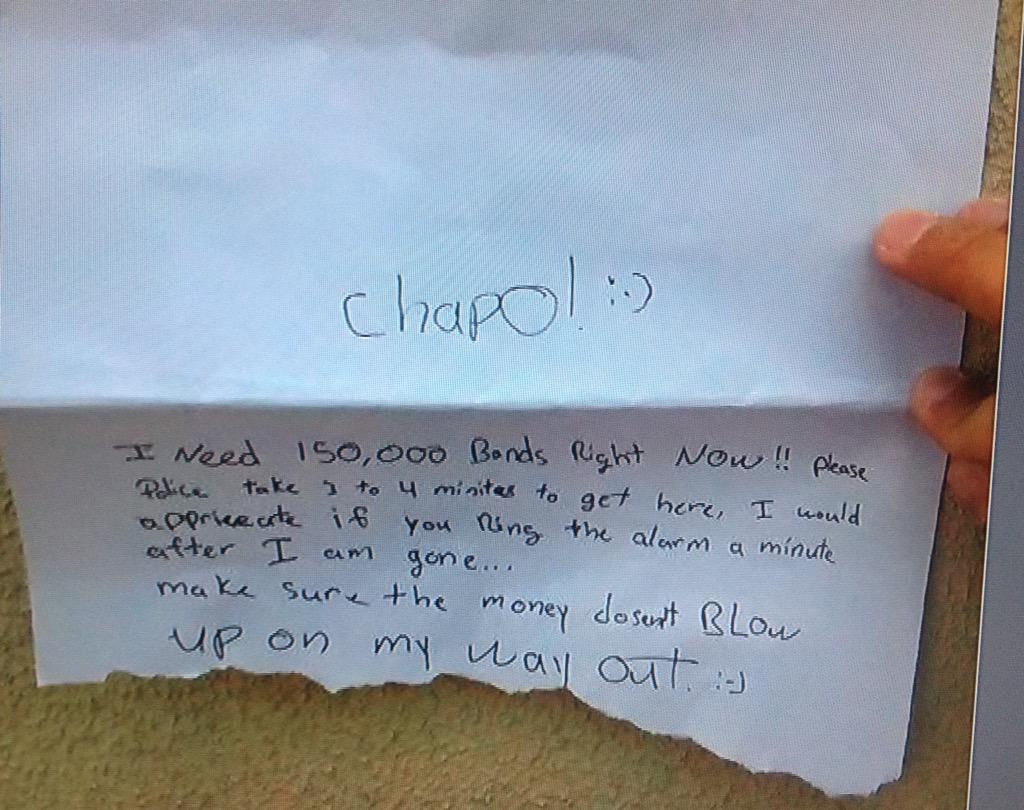 Chapo! :-)
I Need 150,000 Bands Right Now!! please
Police take 3 to 4 minites to get here, I would
appriecate if you Ring the alarm a minute
after I am gone...
make sure the money dosen't BLow
UP on my way OUT. :-)